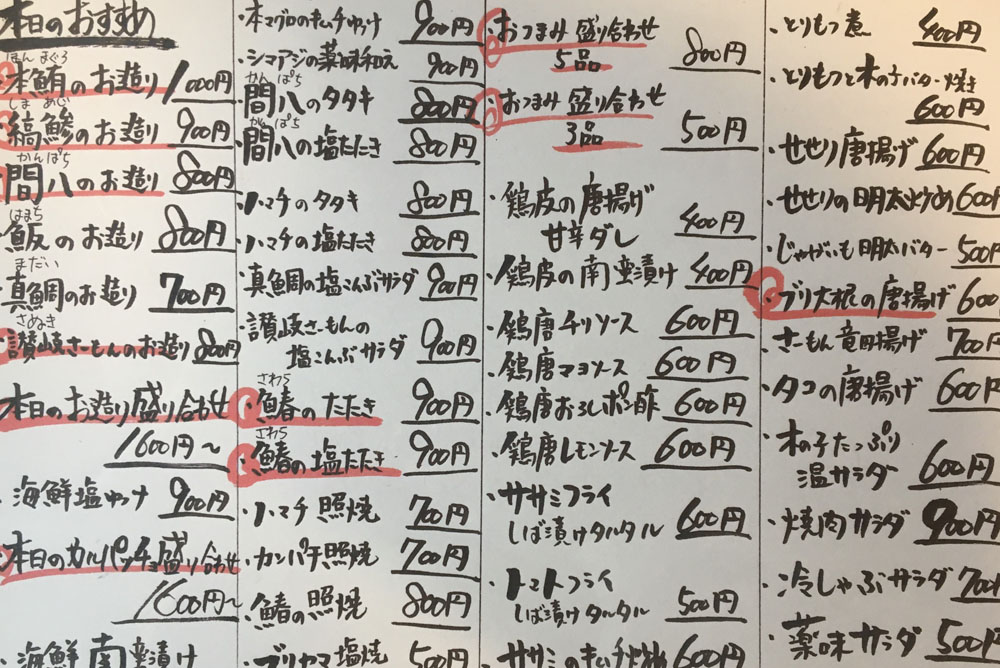 本日のおすすめ
ほん まぐろ
本鮪のお造り 1000円
しま あじ
縞鯵のお造り 900円
かんぱち
間八のお造り 800円
はまち
魬のお造り 800円
まだい
真鯛のお造り 700円
さぬき
讃岐さーもんのお造り 800円
本日のお造り盛り合わせ
1600円〜
・海鮮塩ゆっけ 900円
本日のカルパッチョ盛り合わせ
1600円〜
・海鮮南蛮漬け
・本マグロのキムチゆっけ 900円
・シマアジの薬味和え 900円
かんぱち
・間八のタタキ 800円
かんぱち
・間八の塩たたき 800円
・ハマチのタタキ 800円
・ハマチの塩たたき 800円
・真鯛の塩こんぶサラダ 900円
・讃岐さーもんの
塩こんぶサラダ 900円
さわら
・鰆のたたき 900円
さわら
・鰆の塩たたき 900円
・ハマチ照焼 700円
・カンパチ照焼 700円
・鰆の照焼 800円
・ブリカマ塩焼 500円
・おつまみ盛り合わせ
5品 800円
・おつまみ盛り合わせ
3品 500円
・鶏皮の唐揚げ
甘辛ダレ 400円
・鶏皮の南蛮漬け 400円
・鶏唐チリソース 600円
・鶏唐マヨソース 600円
・鶏唐おろしポン酢 600円
・鶏唐レモンソース 600円
・ササミフライ
しば漬けタルタル 600円
・トマトフライ
しば漬けタルタル 500円
・ササミのキムチ炒め 600円
・とりもつ煮 400円
・とりもつと木の子バター焼き
600円
・せせり唐揚げ 600円
・せせりの明太炒め 600円
・じゃがいも明太バター 500円
・ブリ大根の唐揚げ 600
・さーもん竜田揚げ 700円
・タコの唐揚げ 600円
・木の子たっぷり
温サラダ 600円
・焼肉サラダ 900円
・冷しゃぶサラダ 700
・薬味サラダ 500円